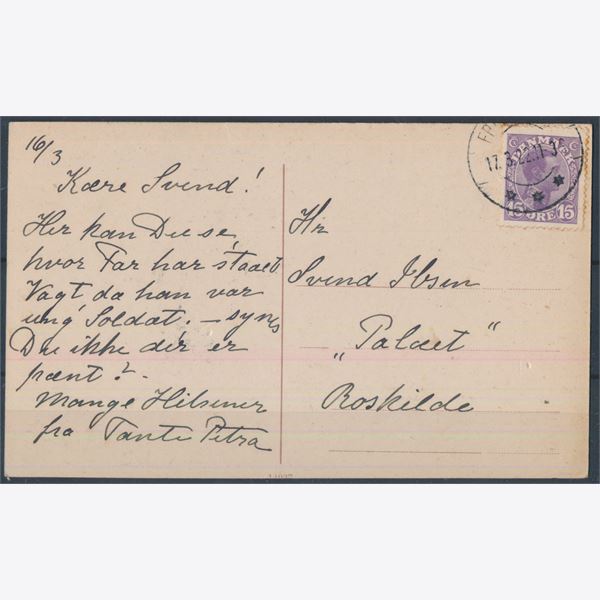 16/3
Kære Svend!
Her kan Du se,
hvor Far har staaet
Vagt, da han var
ung Soldat. – Syns
Du ikke dér er
pænt? –
Mange Hilsener
fra Tante Petra
Hr
Svend Ibsen
„Palæet“
Roskilde
17.3.22.11-
DANMARK
15 ØRE 15